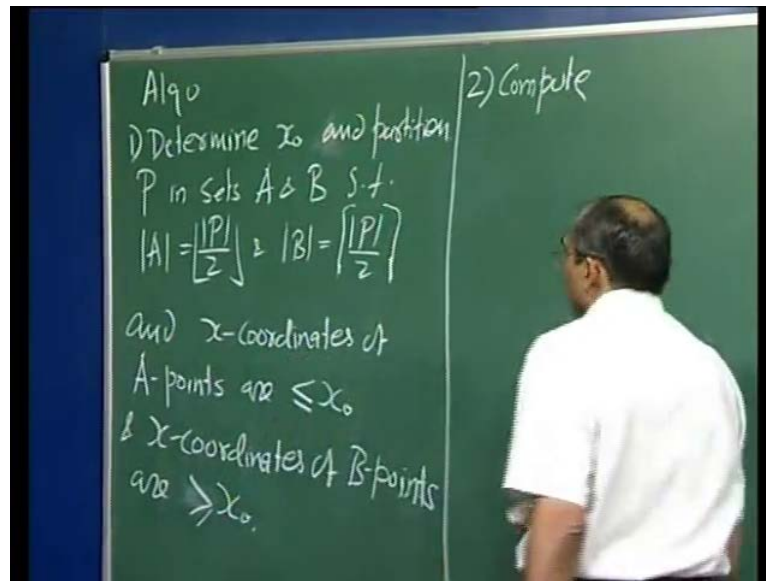 Algo
1) Determine x₀ and partition
P in sets A & B s.t.
|A| = ⌊|P|/2⌋ & |B| = ⌈|P|/2⌉
and x-coordinates of
A-points are ≤ x₀
& x-coordinates of B-points
are ≥ x₀.
2) Compute